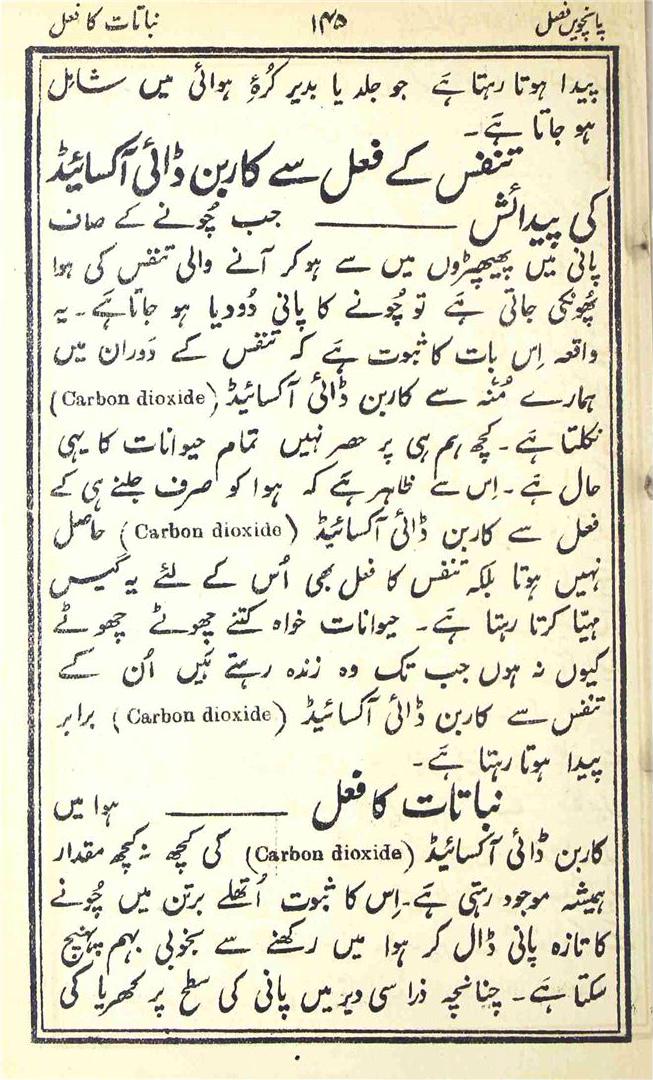 پانچویں فصل ۱۴۵ نباتات کا فعل
پیدا ہوتا رہتا ہے جو جلد یا بدیر کُرۂ ہوائی میں شامل
ہو جاتا ہے۔
تنفس کے فعل سے کاربن ڈائی آکسائیڈ
کی پیدائش ——— جب چُونے کے صاف
پانی میں پھیپھڑوں میں سے ہو کر آنے والی تنفس کی ہوا
پُھونکی جاتی ہے تو چُونے کا پانی دُودیا ہو جاتا ہے۔ یہ
واقعہ اِس بات کا ثبوت ہے کہ تنفس کے دَوران میں
ہمارے مُنہ سے کاربن ڈائی آکسائیڈ (Carbon dioxide)
نکلتا ہے۔ کچھ ہم ہی پر حصر نہیں تمام حیوانات کا یہی
حال ہے۔ اِس سے ظاہر ہے کہ ہوا کو صرف جلنے ہی کے
فعل سے کاربن ڈائی آکسائیڈ (Carbon dioxide) حاصل
نہیں ہوتا بلکہ تنفس کا فعل بھی اُس کے لئے یہ گیس
مہیّا کرتا رہتا ہے۔ حیوانات خواہ کتنے چھوٹے چھوٹے
کیوں نہ ہوں جب تک وہ زندہ رہتے ہَیں اُن کے
تنفس سے کاربن ڈائی آکسائیڈ (Carbon dioxide) برابر
پیدا ہوتا رہتا ہے۔
نباتات کا فعل ——— ہوا میں
کاربن ڈائی آکسائیڈ (Carbon dioxide) کی کچھ نہ کچھ مقدار
ہمیشہ موجود رہتی ہے۔ اِس کا ثبوت اُتھلے برتن میں چُونے
کا تازہ پانی ڈال کر ہوا میں رکھنے سے بخوبی بہم پہنچ
سکتا ہے۔ چنانچہ ذرا سی دیر میں پانی کی سطح پر کھریا کی